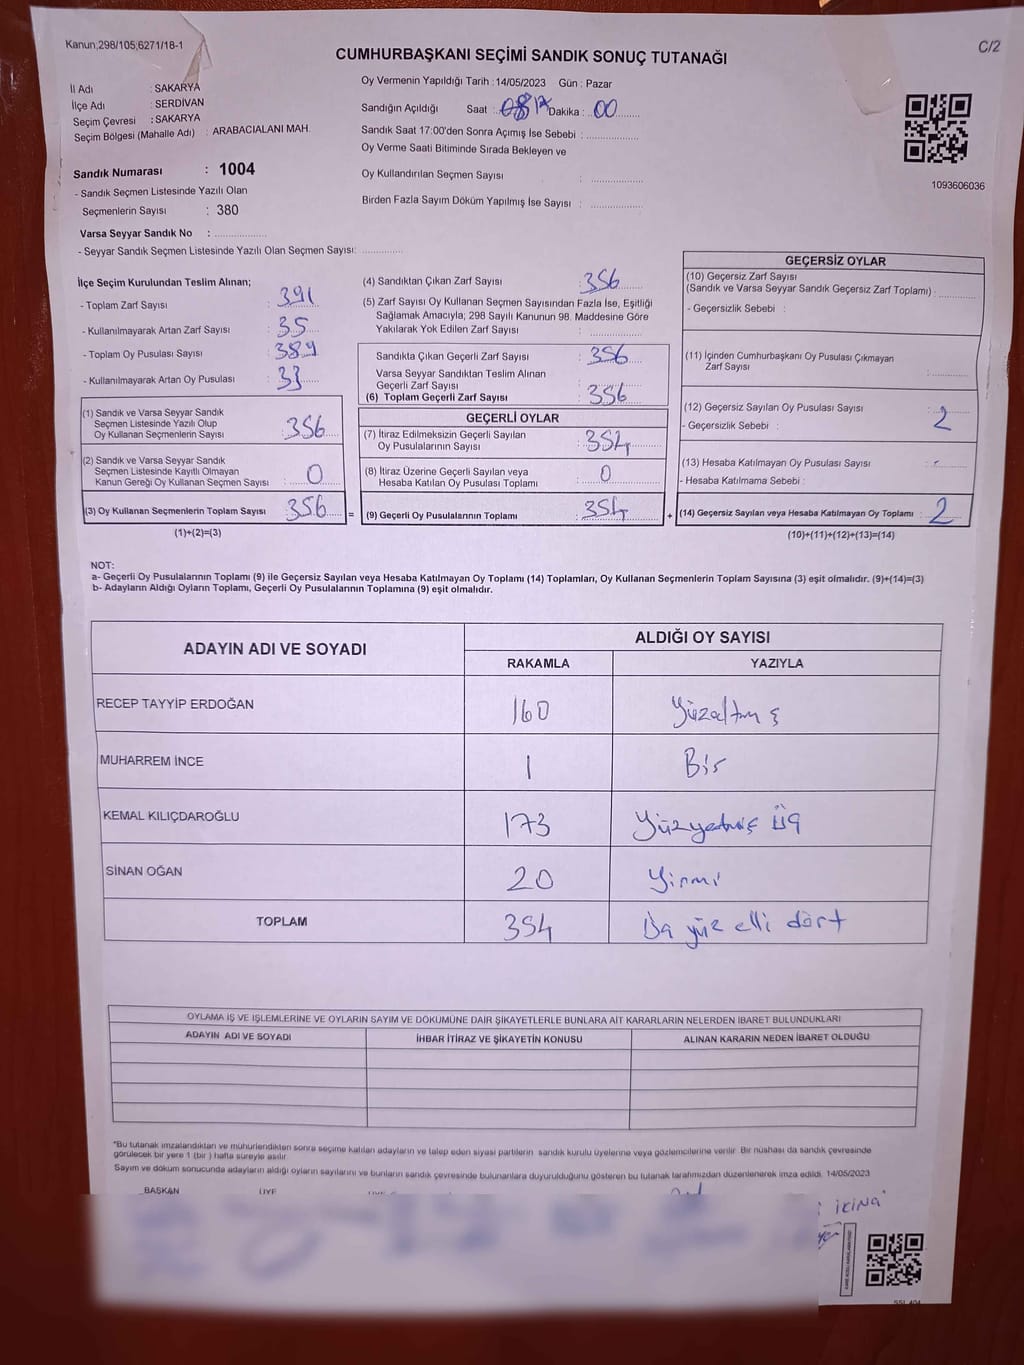 Kanun;298/105;6271/18-1
C/2
CUMHURBAŞKANI SEÇİMİ SANDIK SONUÇ TUTANAĞI
İl Adı : SAKARYA
İlçe Adı : SERDİVAN
Seçim Çevresi : SAKARYA
Seçim Bölgesi (Mahalle Adı) : ARABACIALANI MAH.
Sandık Numarası : 1004
- Sandık Seçmen Listesinde Yazılı Olan
Seçmenlerin Sayısı : 380
Varsa Seyyar Sandık No :
- Seyyar Sandık Seçmen Listesinde Yazılı Olan Seçmen Sayısı:
Oy Vermenin Yapıldığı Tarih : 14/05/2023 Gün : Pazar
Sandığın Açıldığı Saat : 17 Dakika : 00
Sandık Saat 17:00'den Sonra Açımış İse Sebebi :
Oy Verme Saati Bitiminde Sırada Bekleyen ve
Oy Kullandırılan Seçmen Sayısı :
Birden Fazla Sayım Döküm Yapılmış İse Sayısı :
1093606036
İlçe Seçim Kurulundan Teslim Alınan;
- Toplam Zarf Sayısı : 391
- Kullanılmayarak Artan Zarf Sayısı : 35
- Toplam Oy Pusulası Sayısı : 389
- Kullanılmayarak Artan Oy Pusulası : 33
(1) Sandık ve Varsa Seyyar Sandık
Seçmen Listesinde Yazılı Olup
Oy Kullanan Seçmenlerin Sayısı : 356
(2) Sandık ve Varsa Seyyar Sandık
Seçmen Listesinde Kayıtlı Olmayan
Kanun Gereği Oy Kullanan Seçmen Sayısı : 0
(3) Oy Kullanan Seçmenlerin Toplam Sayısı : 356 =
(1)+(2)=(3)
(4) Sandıktan Çıkan Zarf Sayısı : 356
(5) Zarf Sayısı Oy Kullanan Seçmen Sayısından Fazla İse, Eşitliği
Sağlamak Amacıyla; 298 Sayılı Kanunun 98. Maddesine Göre
Yakılarak Yok Edilen Zarf Sayısı :
Sandıkta Çıkan Geçerli Zarf Sayısı : 356
Varsa Seyyar Sandıktan Teslim Alınan
Geçerli Zarf Sayısı :
(6) Toplam Geçerli Zarf Sayısı : 356
GEÇERLİ OYLAR
(7) İtiraz Edilmeksizin Geçerli Sayılan
Oy Pusulalarının Sayısı : 354
(8) İtiraz Üzerine Geçerli Sayılan veya
Hesaba Katılan Oy Pusulası Toplamı : 0
(9) Geçerli Oy Pusulalarının Toplamı : 354 +
GEÇERSİZ OYLAR
(10) Geçersiz Zarf Sayısı
(Sandık ve Varsa Seyyar Sandık Geçersiz Zarf Toplamı) :
- Geçersizlik Sebebi :
(11) İçinden Cumhurbaşkanı Oy Pusulası Çıkmayan
Zarf Sayısı :
(12) Geçersiz Sayılan Oy Pusulası Sayısı : 2
- Geçersizlik Sebebi :
(13) Hesaba Katılmayan Oy Pusulası Sayısı : -
- Hesaba Katılmama Sebebi :
(14) Geçersiz Sayılan veya Hesaba Katılmayan Oy Toplamı : 2
(10)+(11)+(12)+(13)=(14)
NOT:
a- Geçerli Oy Pusulalarının Toplamı (9) ile Geçersiz Sayılan veya Hesaba Katılmayan Oy Toplamı (14) Toplamları, Oy Kullanan Seçmenlerin Toplam Sayısına (3) eşit olmalıdır. (9)+(14)=(3)
b- Adayların Aldığı Oyların Toplamı, Geçerli Oy Pusulalarının Toplamına (9) eşit olmalıdır.
ADAYIN ADI VE SOYADI ALDIĞI OY SAYISI
RAKAMLA YAZIYLA
RECEP TAYYİP ERDOĞAN 160 Yüzaltmış
MUHARREM İNCE 1 Bir
KEMAL KILIÇDAROĞLU 173 Yüzyetmiş Üç
SİNAN OĞAN 20 Yirmi
TOPLAM 354 yüz elli dört
OYLAMA İŞ VE İŞLEMLERİNE VE OYLARIN SAYIM VE DÖKÜMÜNE DAİR ŞİKAYETLERLE BUNLARA AİT KARARLARIN NELERDEN İBARET BULUNDUKLARI
ADAYIN ADI VE SOYADI İHBAR İTİRAZ VE ŞİKAYETİN KONUSU ALINAN KARARIN NEDEN İBARET OLDUĞU
"Bu tutanak imzalandıktan ve mühürlendikten sonra seçime katılan adayların ve talep eden siyasi partilerin sandık kurulu üyelerine veya gözlemcilerine verilir. Bir nüshası da sandık çevresinde
görülecek bir yere 1 (bir) hafta süreyle asılır.
Sayım ve döküm sonucunda adayların aldığı oyların sayılarını ve bunların sandık çevresinde bulunanlara duyurulduğunu gösteren bu tutanak tarafımızdan düzenlenerek imza edildi. 14/05/2023
BAŞKAN ÜYE